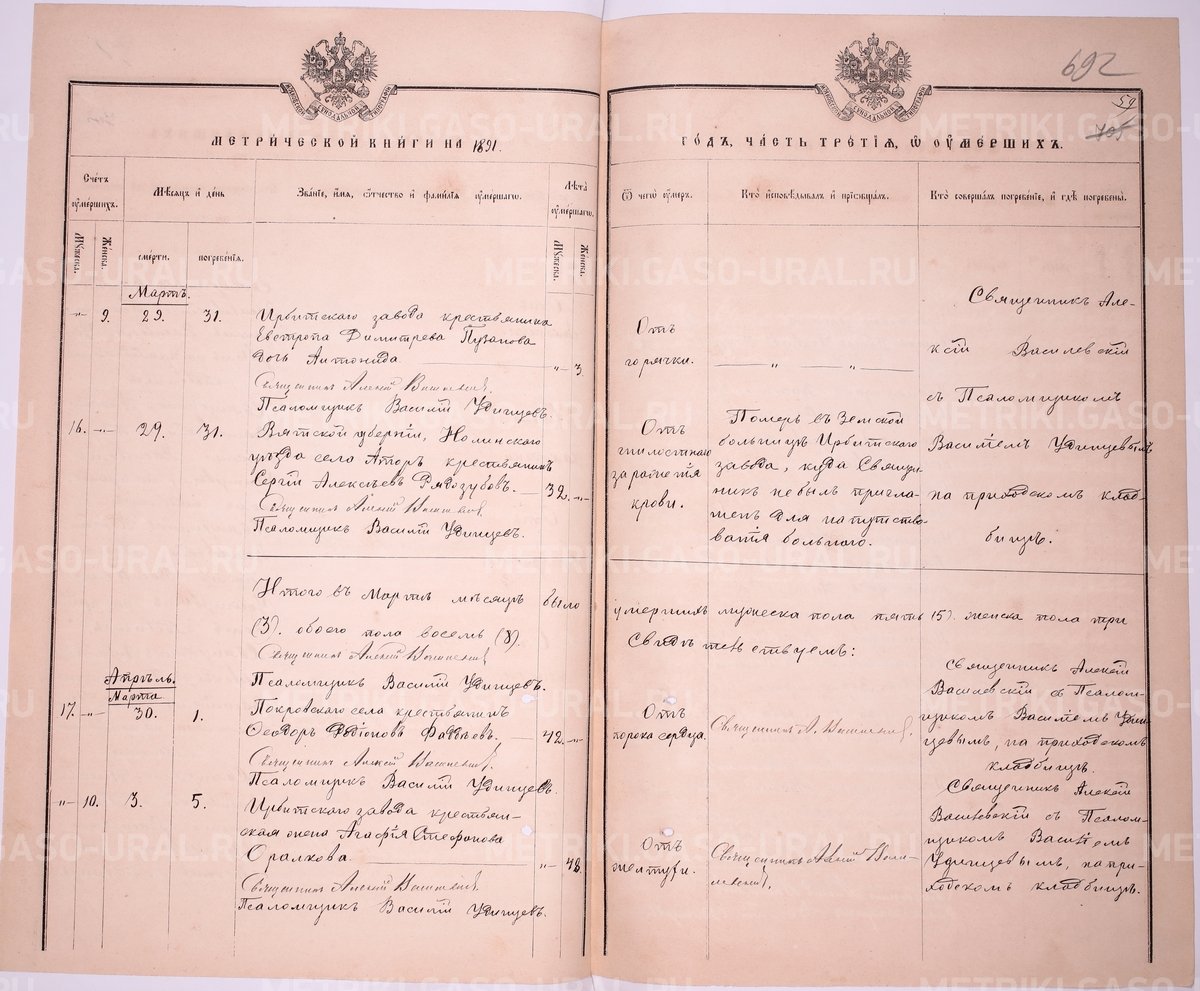 692
59
705
МЕТРИЧЕСКОЙ КНИГИ НА 1891
ГОДЪ, ЧАСТЬ ТРЕТІЯ, Ѿ ОУМЕРШИХЪ.
Счетъ оумершихъ.
Мѣсяцъ и день
Званіе, имя, отчество и фамилія оумершаго.
Лѣта оумершаго.
Ѿ чего оумеръ.
Кто исповѣдывалъ и пріобщалъ.
Кто совершалъ погребеніе, и гдѣ погребены.
Мужеска.
Женска.
смерти.
погребенія.
Мужеска.
Женска.
Мартъ.
-"- 9. 29. 31.
Ирбитскаго завода крестьянина
Евстропа Димитрева Пузанова
дочь Антонида
-"- 3.
Священникъ Алексій Василевскій.
Псаломщикъ Василій Удинцевъ.
Отъ
горячки.
-"- -"-
Священникъ Але-
ксій Василевскій
съ Псаломщикомъ
Василіемъ Удинцевымъ
на приходскомъ клад-
бищѣ.
16. -"- 29. 31.
Вятской губерніи, Нолинскаго
уѣзда села крестьянинъ
Сергій Алексѣевъ Рядозубовъ.
32. -"-
Священникъ Алексій Василевскій
Псаломщикъ Василій Удинцевъ.
Отъ
гнилостнаго
зараженія
крови.
Померъ въ Земской
больницѣ Ирбитскаго
завода, куда Священ-
никъ не былъ пригла-
шенъ для напутство-
ванія больного.
Итого въ Мартѣ мѣсяцѣ было
умершихъ мужеска пола пять (5). женска пола три
(3). обоего пола восемь (8).
Свидѣтельствуемъ:
Священникъ Алексій Василевскій
Псаломщикъ Василій Удинцевъ.
Апрѣль.
Марта
17. -"- 30. 1.
Покровскаго села крестьянинъ
Ѳеодоръ Родіоновъ Фадѣевъ.
42. -"-
Священникъ Алексій Василевскій.
Псаломщикъ Василій Удинцевъ.
Отъ
порока сердца.
Священникъ А. Василевскій.
Священникъ Алексій
Василевскій съ Псалом-
щикомъ Василіемъ Удин-
цевымъ, на приходскомъ
кладбищѣ.
-"- 10. 3. 5.
Ирбитскаго завода крестьян-
ская жена Агафія Стефанова
Оралкова
-"- 48.
Священникъ Алексій Василевскій.
Псаломщикъ Василій Удинцевъ.
Отъ
желтухи.
Священникъ Алексій Васи-
левскій.
Священникъ Алексій
Василевскій съ Псалом-
щикомъ Василіемъ
Удинцевымъ, на при-
ходскомъ кладбищѣ.
METRIKI.GASO-URAL.RU